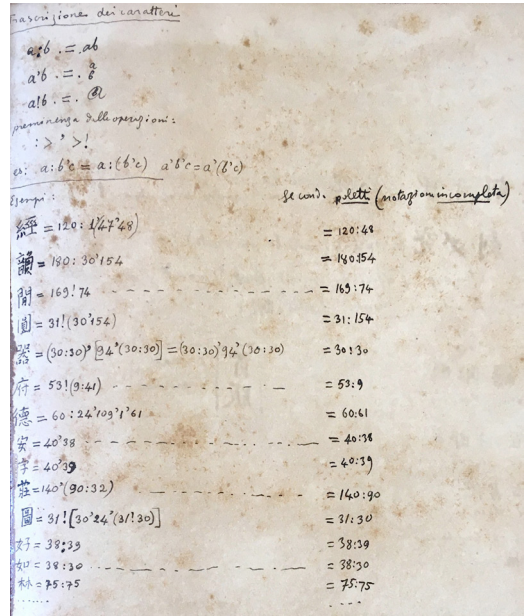 Trascrizione dei caratteri
a:b .=. ab
a'b .=. a b
a!b .=.
preminenza delle operazioni:
: > ' > !
es: a:b'c = a:(b'c) a'b'c = a'(b'c)
Esempi: secondo poletti (notazion incompleta)
經 = 120:1'(47'48) = 120:48
韻 = 180:30'154 = 180:154
間 = 169!74 = 169:74
圓 = 31!(30'154) = 31:154
器 = (30:30)'[94'(30:30)] = (30:30)'94'(30:30) = 30:30
府 = 53!(9:41) = 53:9
德 = 60:24'109'1'61 = 60:61
安 = 40'38 = 40:38
字 = 40'39 = 40:39
莊 = 140'(90:32) = 140:90
圖 = 31![30'24'(31!30)] = 31:30
好 = 38:39 = 38:39
如 = 38:30 = 38:30
林 = 75:75 = 75:75